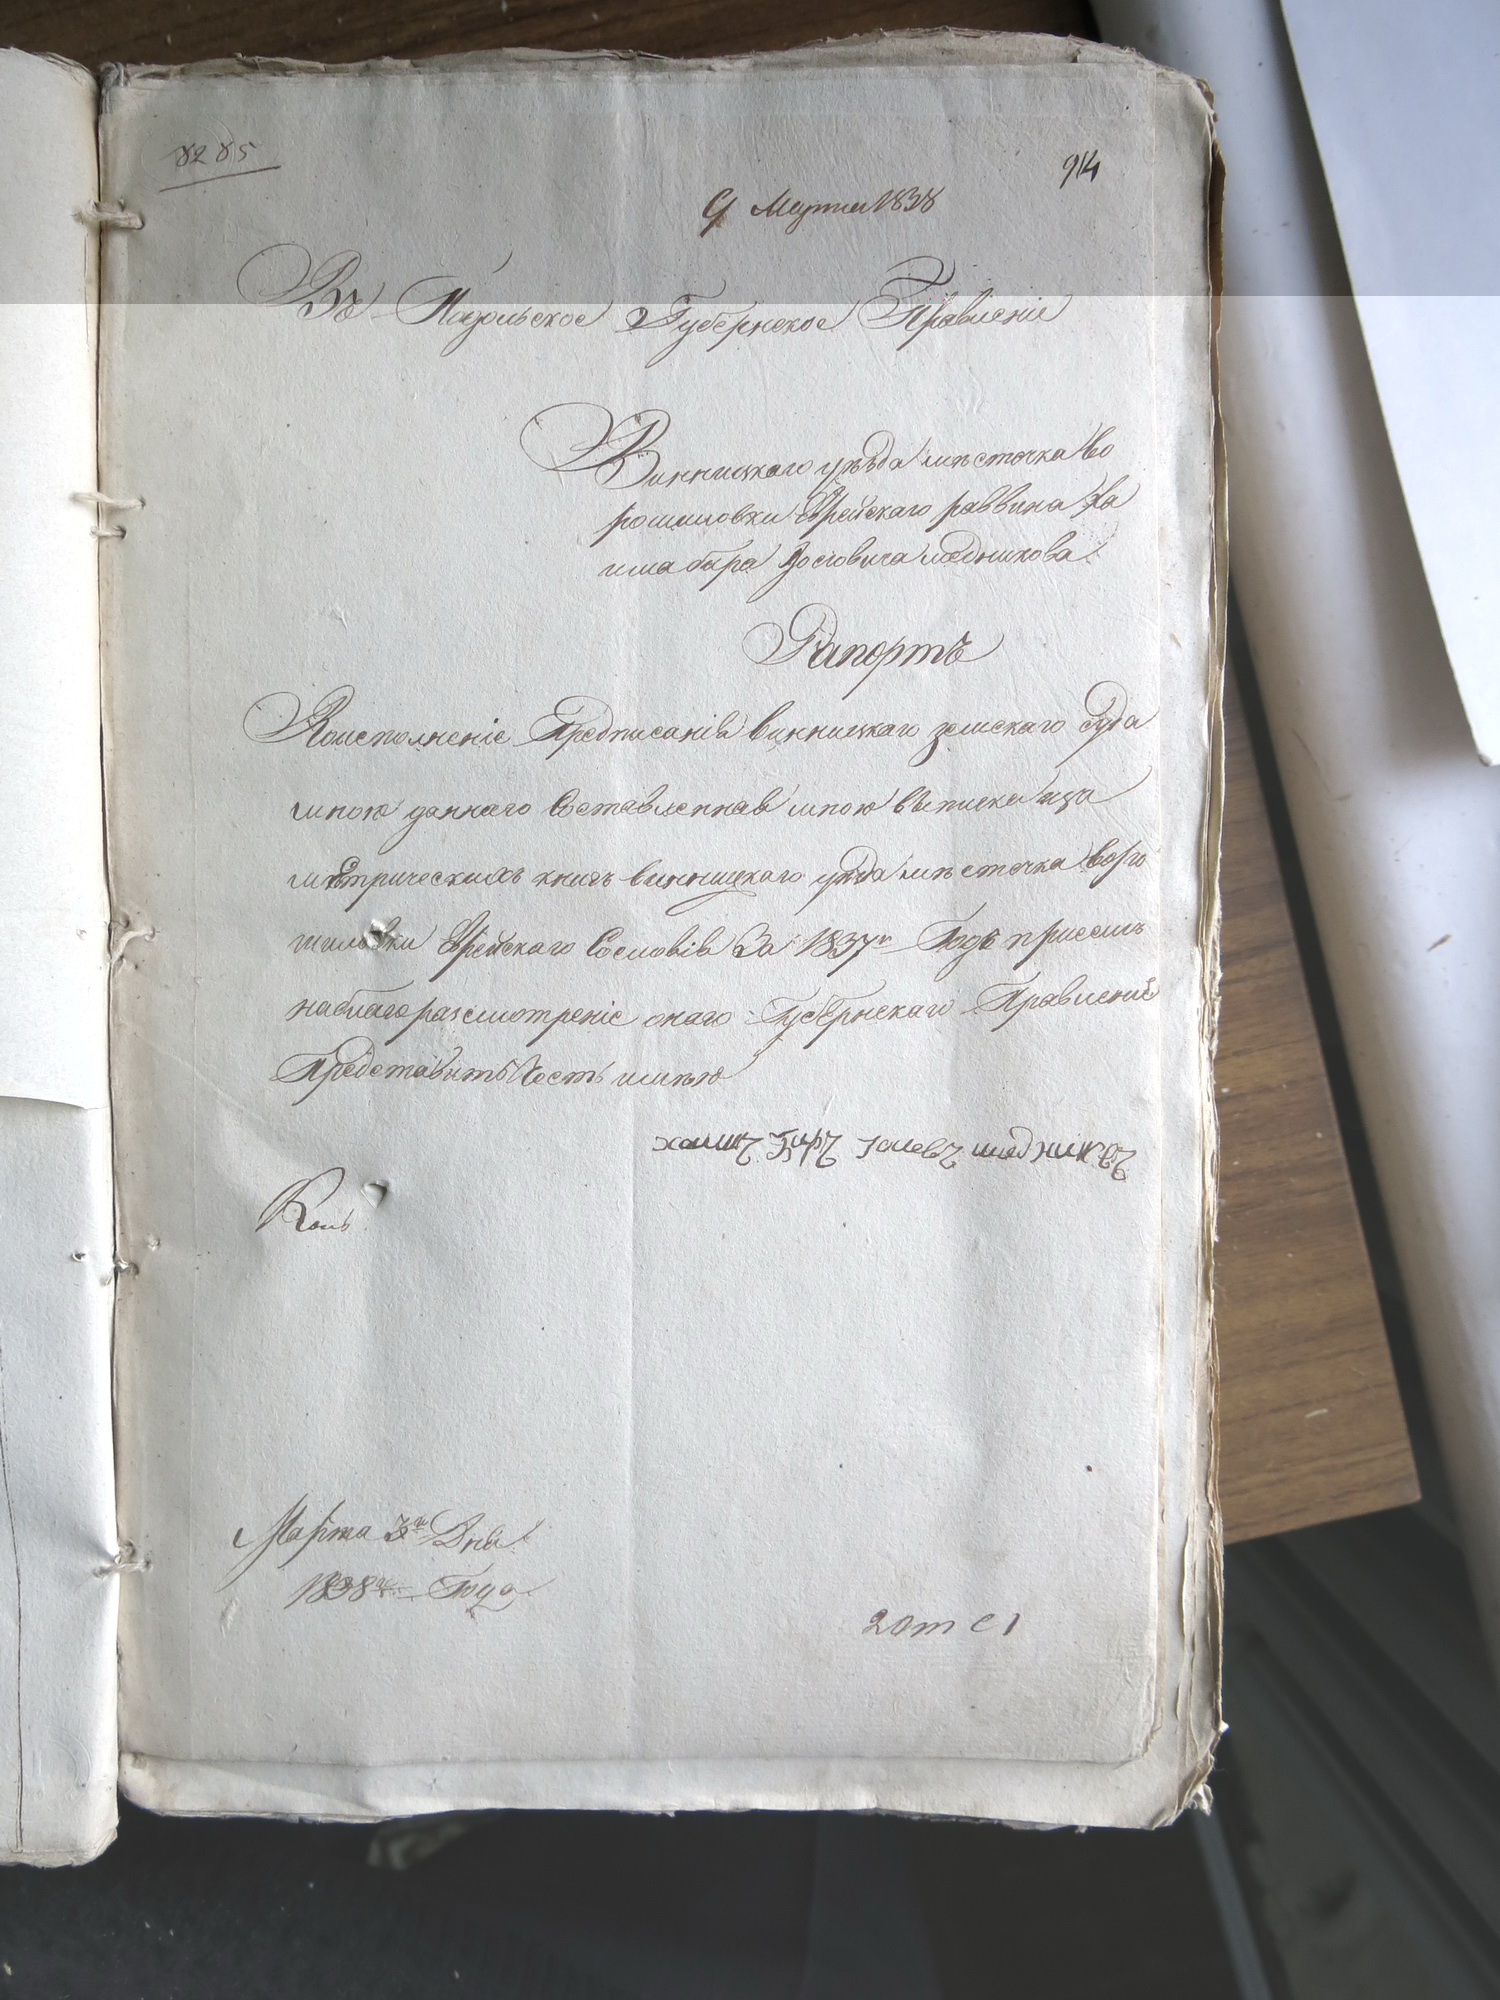 8285
94
9 Марта 1838
Въ Подольское Губернское Правленіе
Винницкаго уѣзда мѣстечка Во
рошиловки Еврейскаго раввина Ха
има бера Іосіовича медникова
Рапортъ
Воисполненіе Предписанія винницкаго земскаго Суда
мною даннаго Составленная мною выписка иза
мѣтрическихъ книгъ винницкаго уѣзда мѣстечка воро
шиловки Еврейскаго Сословія За 1837й Годъ присемъ
наблагоразсмотреніе онаго Губернскаго Правленія
Представить Честь имѣю
хаимъ беръ медниковъ
Марта 3го Дня
1838го Года
2 от с 1